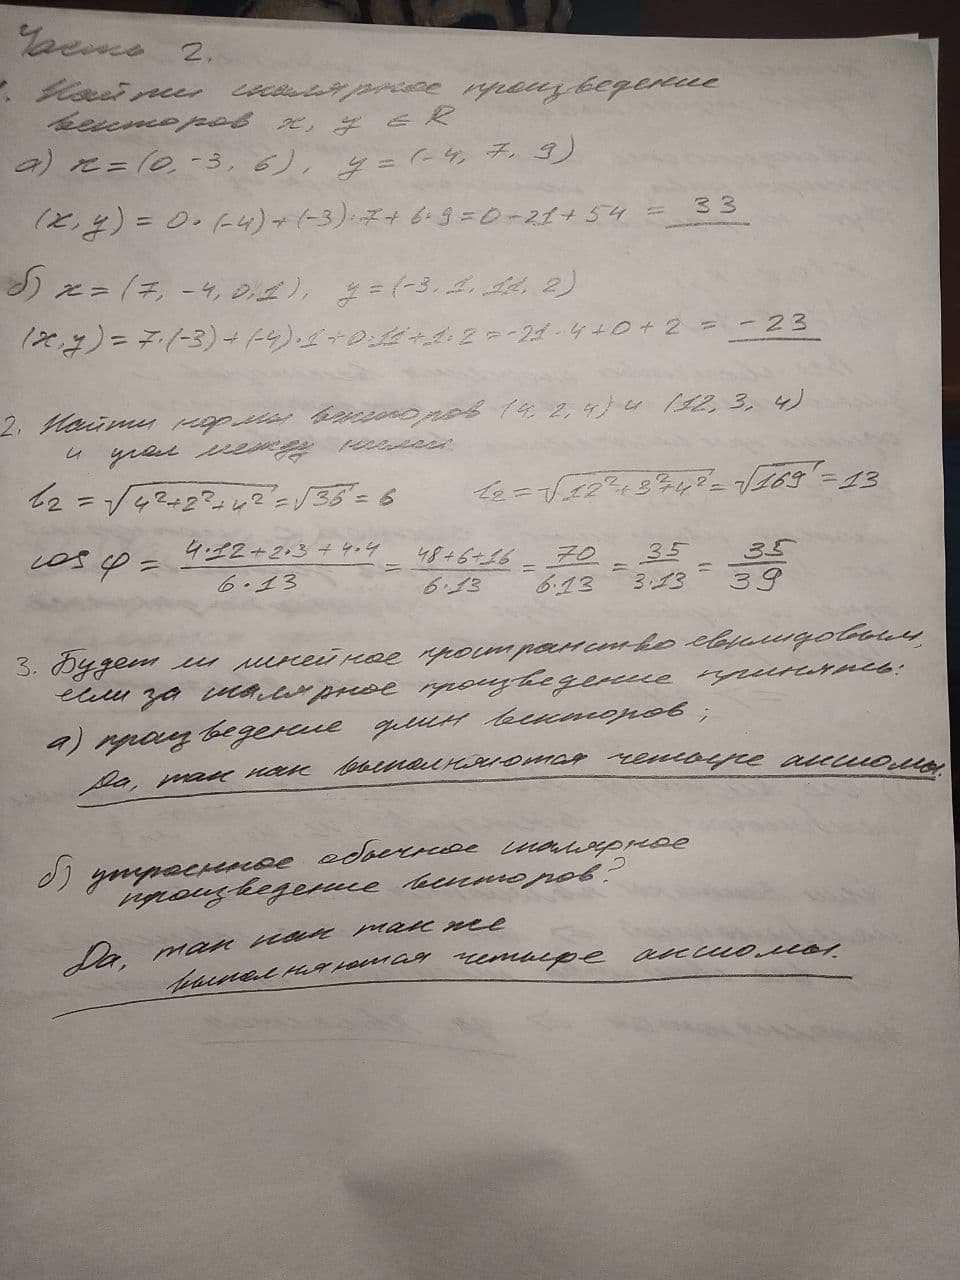 Часть 2.
1. Найти скалярное произведение
векторов x, y ∈ R
а) x = (0, -3, 6), y = (-4, 7, 9)
(x, y) = 0·(-4)+(-3)·7+6·9=0-21+54 = 33
б) x = (7, -4, 0, 1), y = (-3, 1, 11, 2)
(x, y) = 7·(-3)+(-4)·1+0·11+1·2=-21-4+0+2 = -23
2. Найти нормы векторов (4, 2, 4) и (12, 3, 4)
и угол между ними
l2 = √(4²+2²+4²) = √36 = 6 l2 = √(12²+3²+4²) = √169 = 13
cos φ = (4·12+2·3+4·4)/(6·13) = (48+6+16)/(6·13) = 70/(6·13) = 35/(3·13) = 35/39
3. Будет ли линейное пространство евклидовым,
если за скалярное произведение принять:
а) произведение длин векторов;
Да, так как выполняются четыре аксиомы.
б) утроенное обычное скалярное
произведение векторов?
Да, так как так же
выполняются четыре аксиомы.